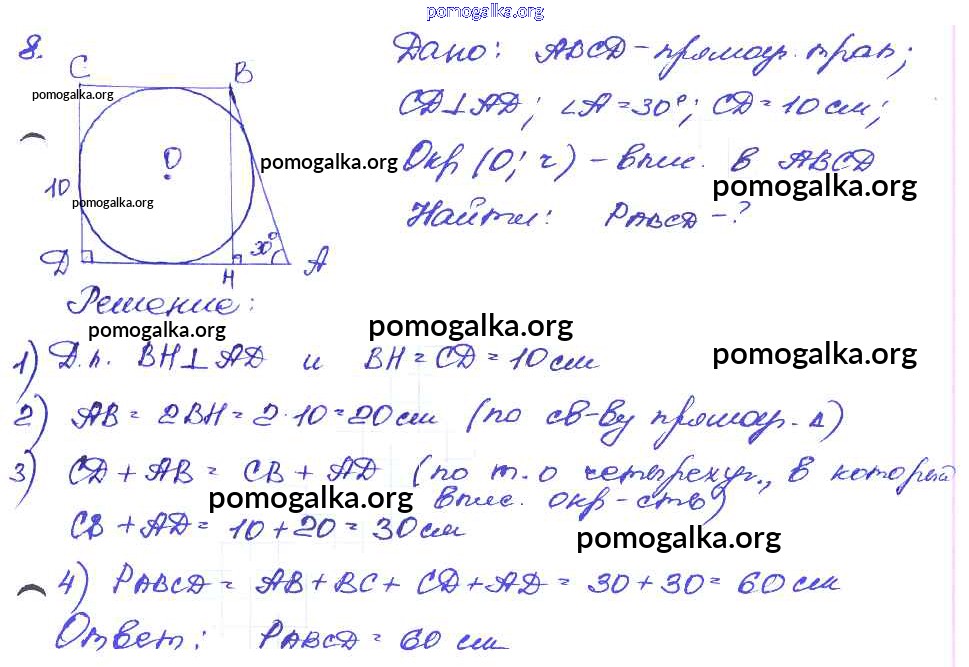 pomogalka.org
8.
Дано: ABCD - прямоуг. трап;
C B
pomogalka.org
CD⊥AD; ∠A = 30°; CD = 10 см;
O
pomogalka.org
Окр (O; r) - впис. в ABCD
10
pomogalka.org
pomogalka.org
Найти: PABCD - ?
30°
D H A
Решение:
pomogalka.org
pomogalka.org
1) Д.п. BH⊥AD и BH = CD = 10 см
pomogalka.org
2) AB = 2BH = 2·10 = 20 см (по св-ву прямоуг. Δ)
3) CD + AB = CB + AD (по т. о четырехуг., в который
pomogalka.org
впис. окр-сть)
CB + AD = 10 + 20 = 30 см
pomogalka.org
4) PABCD = AB + BC + CD + AD = 30 + 30 = 60 см
Ответ: PABCD = 60 см